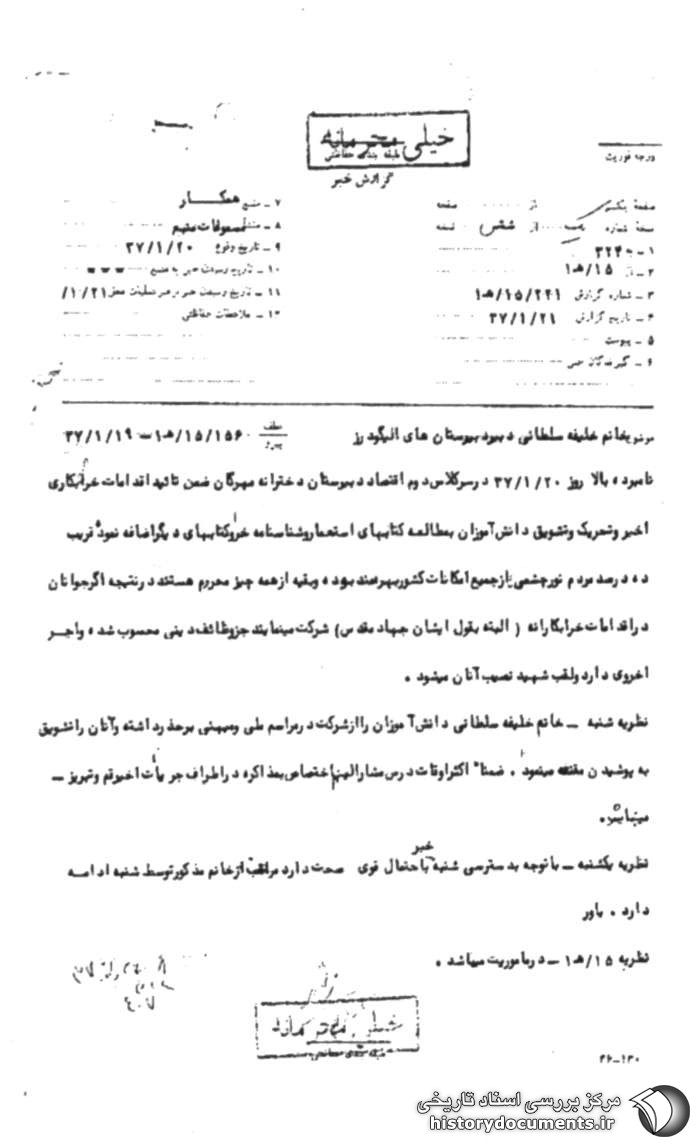 خیلی محرمانه
طبقه بندی حفاظتی
درجه فوریت
گزارش خبر
صفحه یکم از صفحه
نسخه شماره از شش نسخه
۱ - به ۳۲۴
۲ - از ۱۵/هـ۱
۳ - شماره گزارش ۱۵/۲۴۱/هـ۱
۴ - تاریخ گزارش ۳۷/۱/۲۱
۵ - پیوست
۶ - گیرندگان خبر
۷ - منبع همکار
۸ - منشأ مسموعات متهم
۹ - تاریخ وقوع ۳۷/۱/۲۰
۱۰ - تاریخ رسیدن خبر به منبع
۱۱ - تاریخ رسیدن خبر به رهبر عملیات ۱/۲۱/
۱۲ - ملاحظات حفاظتی
موضوع خانم خلیفه سلطانی دبیر دبیرستان های الیگودرز عطف پیرو ۱۵/۱۵۶۰/هـ۱ - ۳۷/۱/۱۹
نامبرده بالا روز ۳۷/۱/۲۰ در سر کلاس دوم اقتصاد دبیرستان دخترانه مهرگان ضمن تائید اقدامات خرابکاری
اخیر وتحریک وتشویق دانش آموزان بمطالعه کتابهای استعمار وشناسنامه خر وکتابهای دیگر اضافه نموده قریب
ده درصد مردم نورچشمی از جمیع امکانات کشور بهره مند بوده وبقیه از همه چیز محروم هستند در نتیجه اگر جوانان
در اقدامات خرابکارانه ( البته بقول ایشان جهاد مقدس ) شرکت مینمایند جزو وظائف دینی محسوب شده واجر
اخروی دارد ولقب شهید نصیب آنان میشود .
نظریه شنبه - خانم خلیفه سلطانی دانش آموزان را از شرکت در مراسم ملی ومیهنی برحذر داشته وآنان را تشویق
به پوشیدن مقنعه مینمود . ضمنا" اکثر اوقات درس مشارالیها اختصاص بمذاکره در اطراف جریانات اخیر قم وتبریز -
مینماید .
نظریه یکشنبه - با توجه به دسترسی شنبه خبر با احتمال قوی صحت دارد مراقبت از خانم مذکور توسط شنبه ادامه
دارد . باور
نظریه ۱۵/هـ۱ - در ماموریت میباشد .
خیلی محرمانه
۳۶-۱۳۰
مرکز بررسی اسناد تاریخی
historydocuments.ir